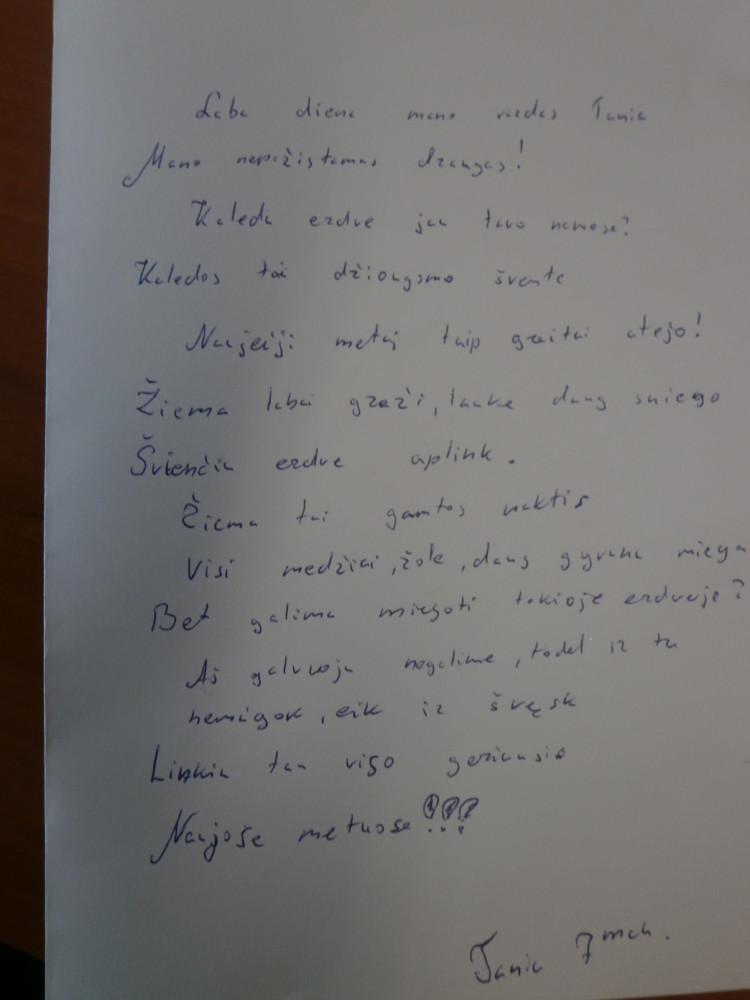 Laba diena mano vardas Tania
Mano nepažįstamas draugas!
Kaledu erdve jau tavo namose?
Kaledos tai džiaugsmo švente
Naujeiji metai taip greitai atejo!
Žiema labai graži, lauke daug sniego
Švienčiu erdve aplink.
Žiema tai gamtos naktis
Visi medžiai, žole, daug gyvunu miega
Bet galima miegoti tokioje erdveje?
Aš galvoju negalime, todel ir tu
nemiegok, eik ir švęsk
Linkiu tau viso geriausio
Naujoše metuose!!!
Tania 7